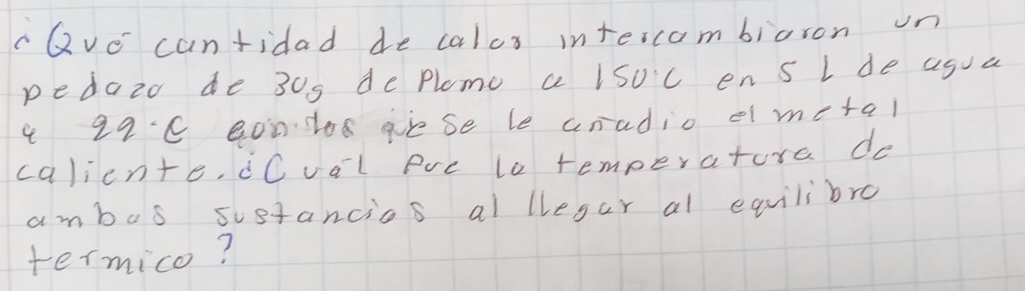 ¿Qué cantidad de calor intercambiaron un
pedazo de 30g de Plomo a 150°C en 5 L de agua
a 22°C con los que se le añadio el metal
caliente. ¿Cuál fue la temperatura de
ambas sustancias al llegar al equilibro
termico?